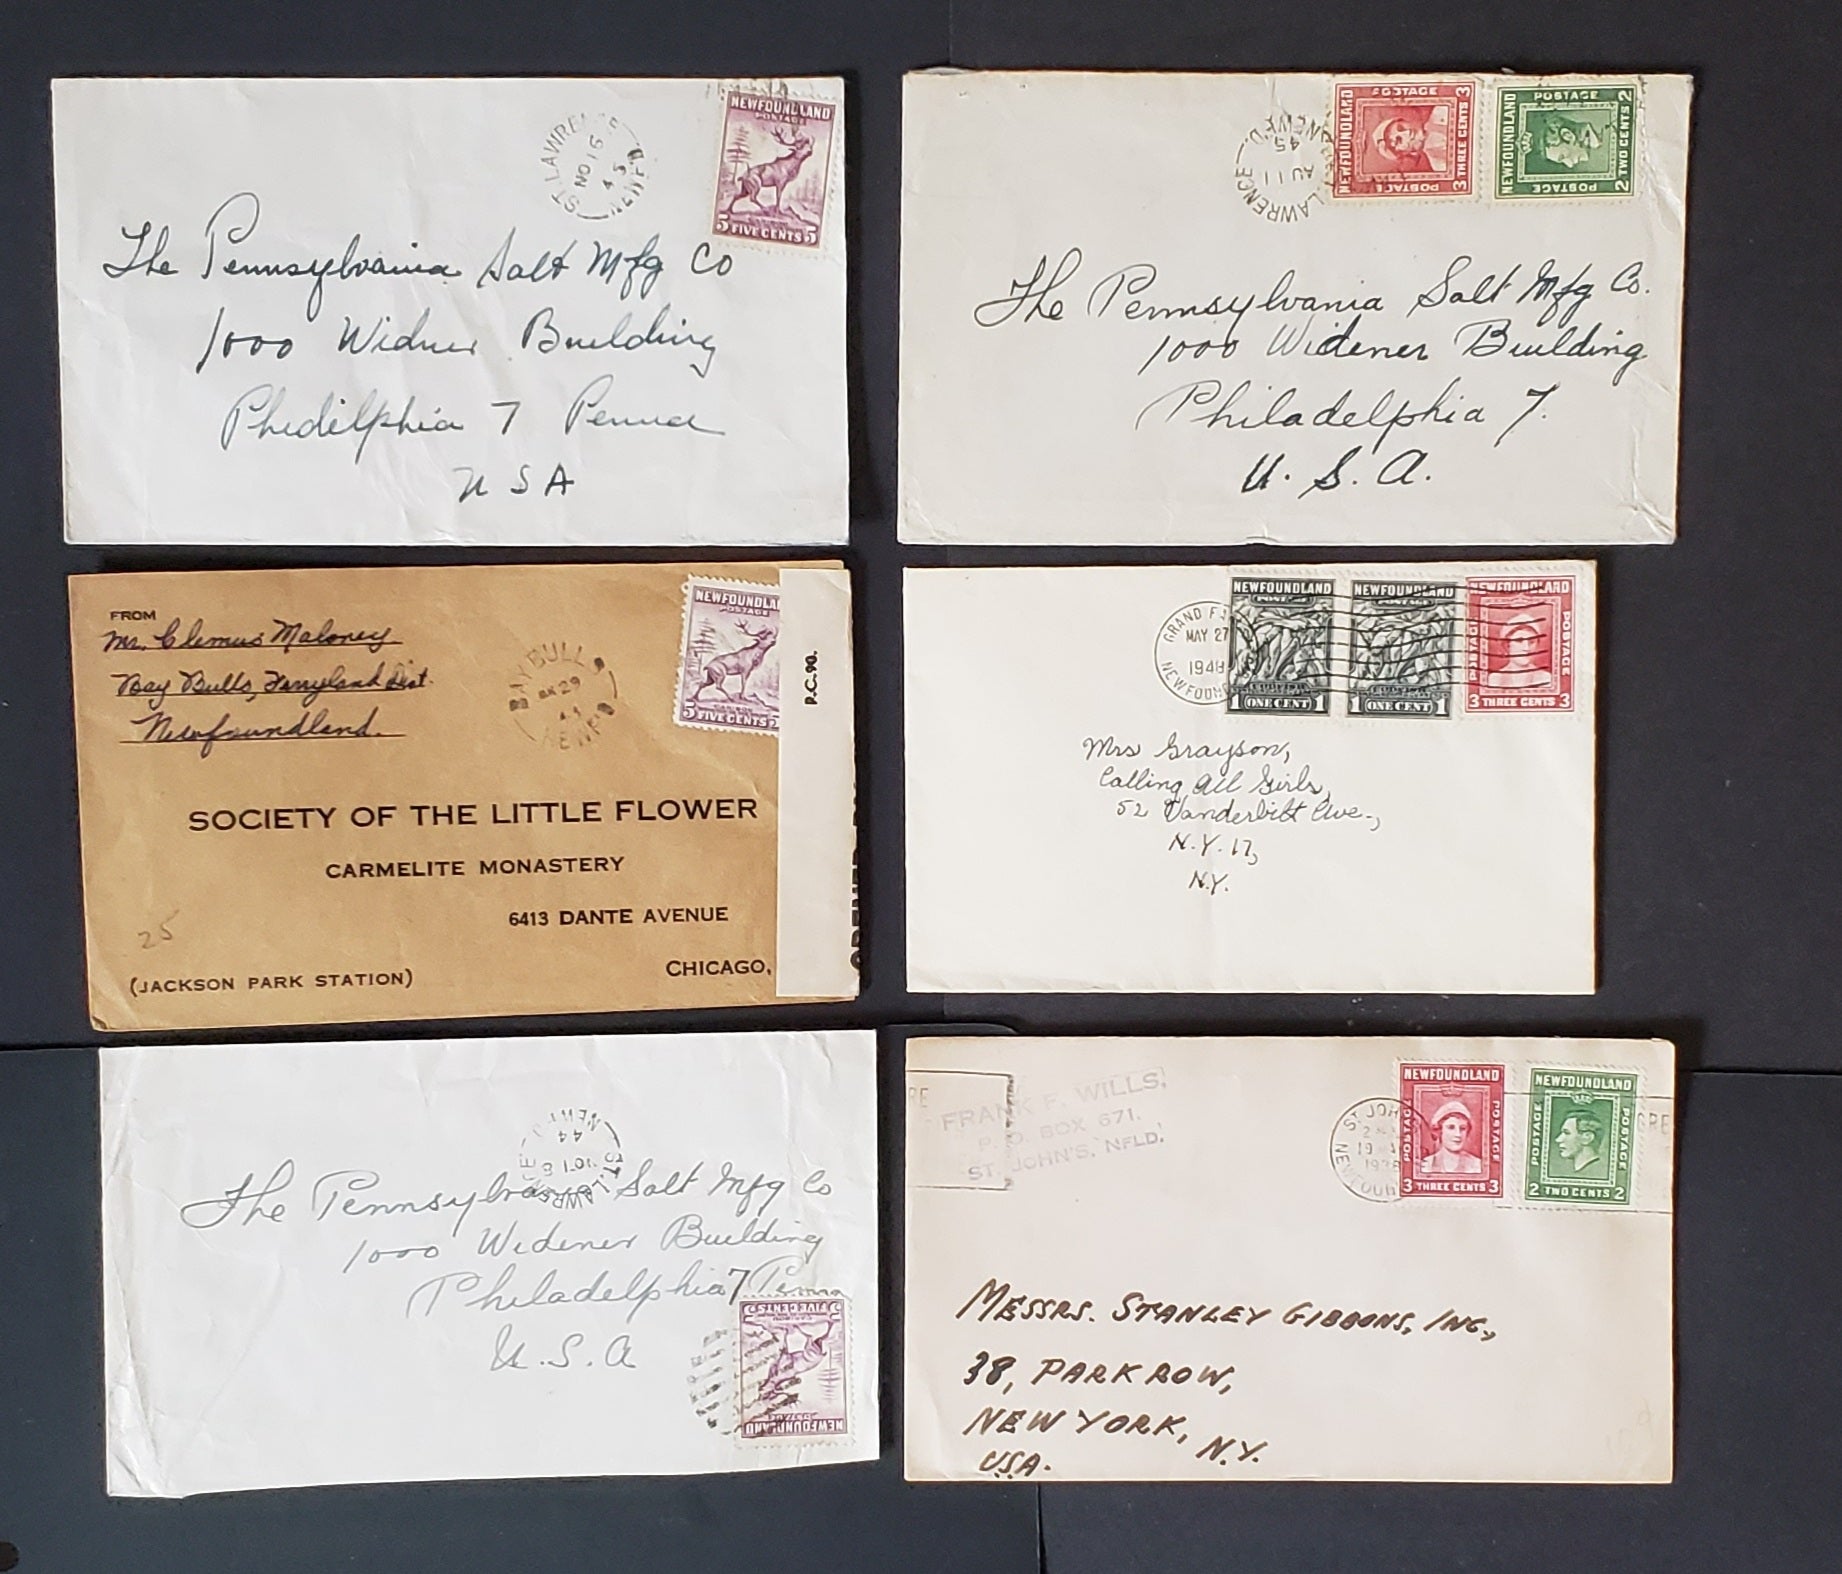 ST. LAWRENCE
NO 16
45
NEWF'D.
NEWFOUNDLAND
POSTAGE
5 FIVE CENTS 5
The Pennsylvania Salt Mfg Co
1000 Widner Building
Phidilphia 7 Penna
U S A
ST. LAWRENCE
AU 11
45
NEWF'D.
NEWFOUNDLAND
POSTAGE
POSTAGE
3 THREE CENTS 3
NEWFOUNDLAND
POSTAGE
POSTAGE
2 TWO CENTS 2
The Pennsylvania Salt Mfg Co.
1000 Widener Building
Philadelphia 7.
U. S. A.
FROM
Mr. Clemus Maloney
Bay Bulls, Ferryland Dist.
Newfoundland.
BAY BULLS
29
44
NEWF'D
NEWFOUNDLAN
POSTAGE
5 FIVE CENTS
P.C. 90.
SOCIETY OF THE LITTLE FLOWER
CARMELITE MONASTERY
6413 DANTE AVENUE
CHICAGO,
(JACKSON PARK STATION)
25
GRAND F
MAY 27
1948
NEWFOUN
NEWFOUNDLAND
1 ONE CENT 1
NEWFOUNDLAND
1 ONE CENT 1
NEWFOUNDLAND
POSTAGE
POSTAGE
3 THREE CENTS 3
Mrs Grayson,
Calling All Girls,
52 Vanderbilt Ave.,
N.Y. 17,
N.Y.
ST. LAWRENCE
NO 18
44
NEWF'D
The Pennsylvania Salt Mfg Co
1000 Widener Building
Philadelphia 7 Penna
U. S. A
5 FIVE CENTS 5
POSTAGE
NEWFOUNDLAND
RE
FRANK F. WILLS,
P.O. BOX 671.
ST. JOHN'S, NFLD.
ST. JOH
19
NEWFOUN
NEWFOUNDLAND
POSTAGE
POSTAGE
3 THREE CENTS 3
NEWFOUNDLAND
POSTAGE
POSTAGE
2 TWO CENTS 2
GRE
MESSRS. STANLEY GIBBONS, INC.,
38, PARK ROW,
NEW YORK, N.Y.
U.S.A.